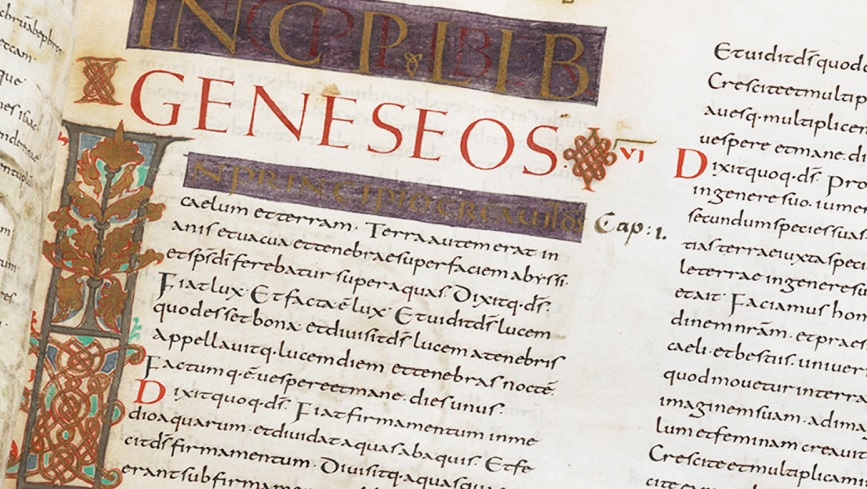 INCP LIB
GENESEOS
VI
INPRINCIPIO CREAVIT DS
Cap: 1.
caelum et terram. Terra autem erat in
anis et uacua et tenebrae super faciem abyssi.
et sps di ferebatur super aquas. Dixitq. ds.
Fiat lux. Et facta ē lux. Et uidit ds lucem
quod esset bona et diuisit ds lucem a tenebris
appellauitq. lucem diem et tenebras noctē.
Factumq. ē. uespere et mane. dies unus.
Dixit quoq. ds. Fiat firmamentum in me
dio aquarum. et diuidat aquas ab aquis. Et fe
cit ds firmamentum. Diuisitq. aquas
erant sub firmamen
Et uidit ds quod e
Crescite et multip
auesq. multiplice
uespere et mane. di
Dixit quoq. ds. Pr
in genere suo. iume
secundum species suas
tias terrae iuxta speci
le terrae in genere su
erat. Faciamus hom
dinem nrām. et praes
caeli. et bestiis. univer
quod mouetur in terra
imaginem suam. ad ima
lum et feminam creauit
Crescite et multiplicam